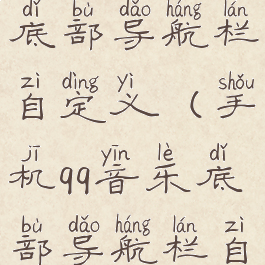 dǐ bù dǎo háng lán
底部导航栏
zì dìng yì shǒu
自定义（手
jī yīn lè dǐ
机99音乐底
bù dǎo háng lán zì
部导航栏自